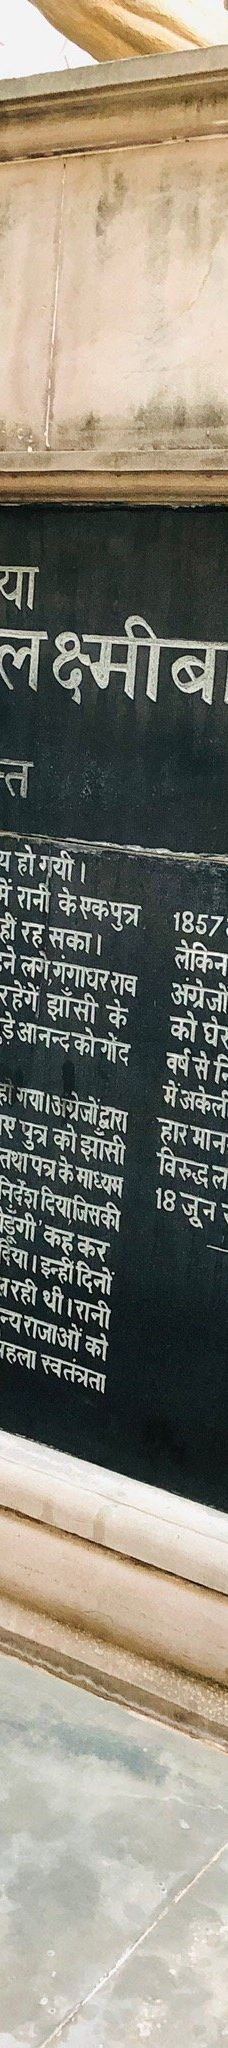 या
लक्ष्मीबा
न्त
य हो गयी।
में रानी के एक पुत्र
हीं रह सका।
ने लगे, गंगाधर राव
रहेगें झाँसी के
ड़े आनन्द को गोंद
हो गया। अंग्रेजों द्वारा
ए पुत्र को झाँसी
तथा पत्र के माध्यम
निर्देश दिया जिसकी
दूँगी' कह कर
दिया। इन्हीं दिनों
न रही थी। रानी
न्य राजाओं को
पहला स्वतंत्रता
1857
लेकिन
अंग्रेजों
को घेर
वर्ष से नि
में अकेली
हार मान
विरूद्ध ल
18 जून